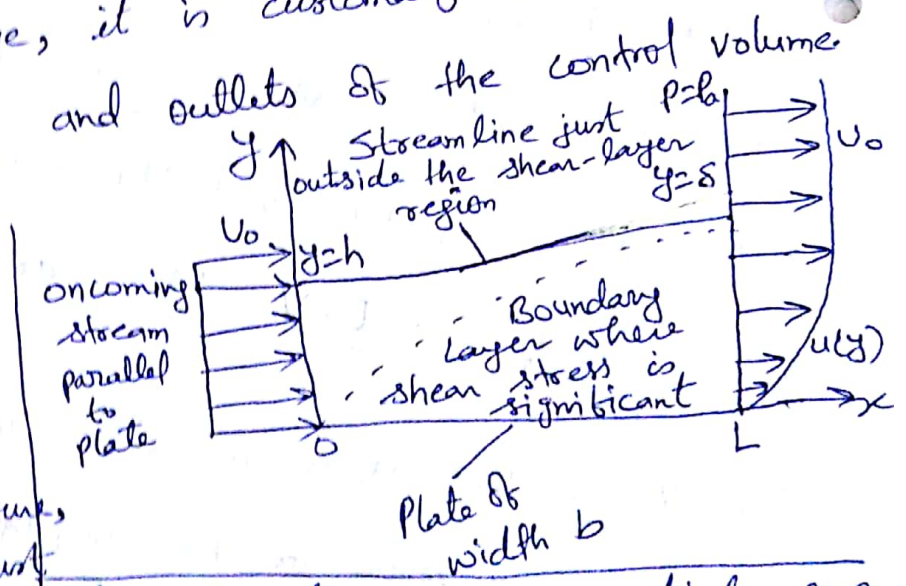 e, it is
and outlets of the control volume.
y
Streamline just
outside the shear-layer
region
p=pa
y=δ
U₀
U₀
y=h
oncoming
stream
parallel
to
plate
Boundary
Layer where
shear stress is
significant
u(y)
x
0
L
Plate of
width b